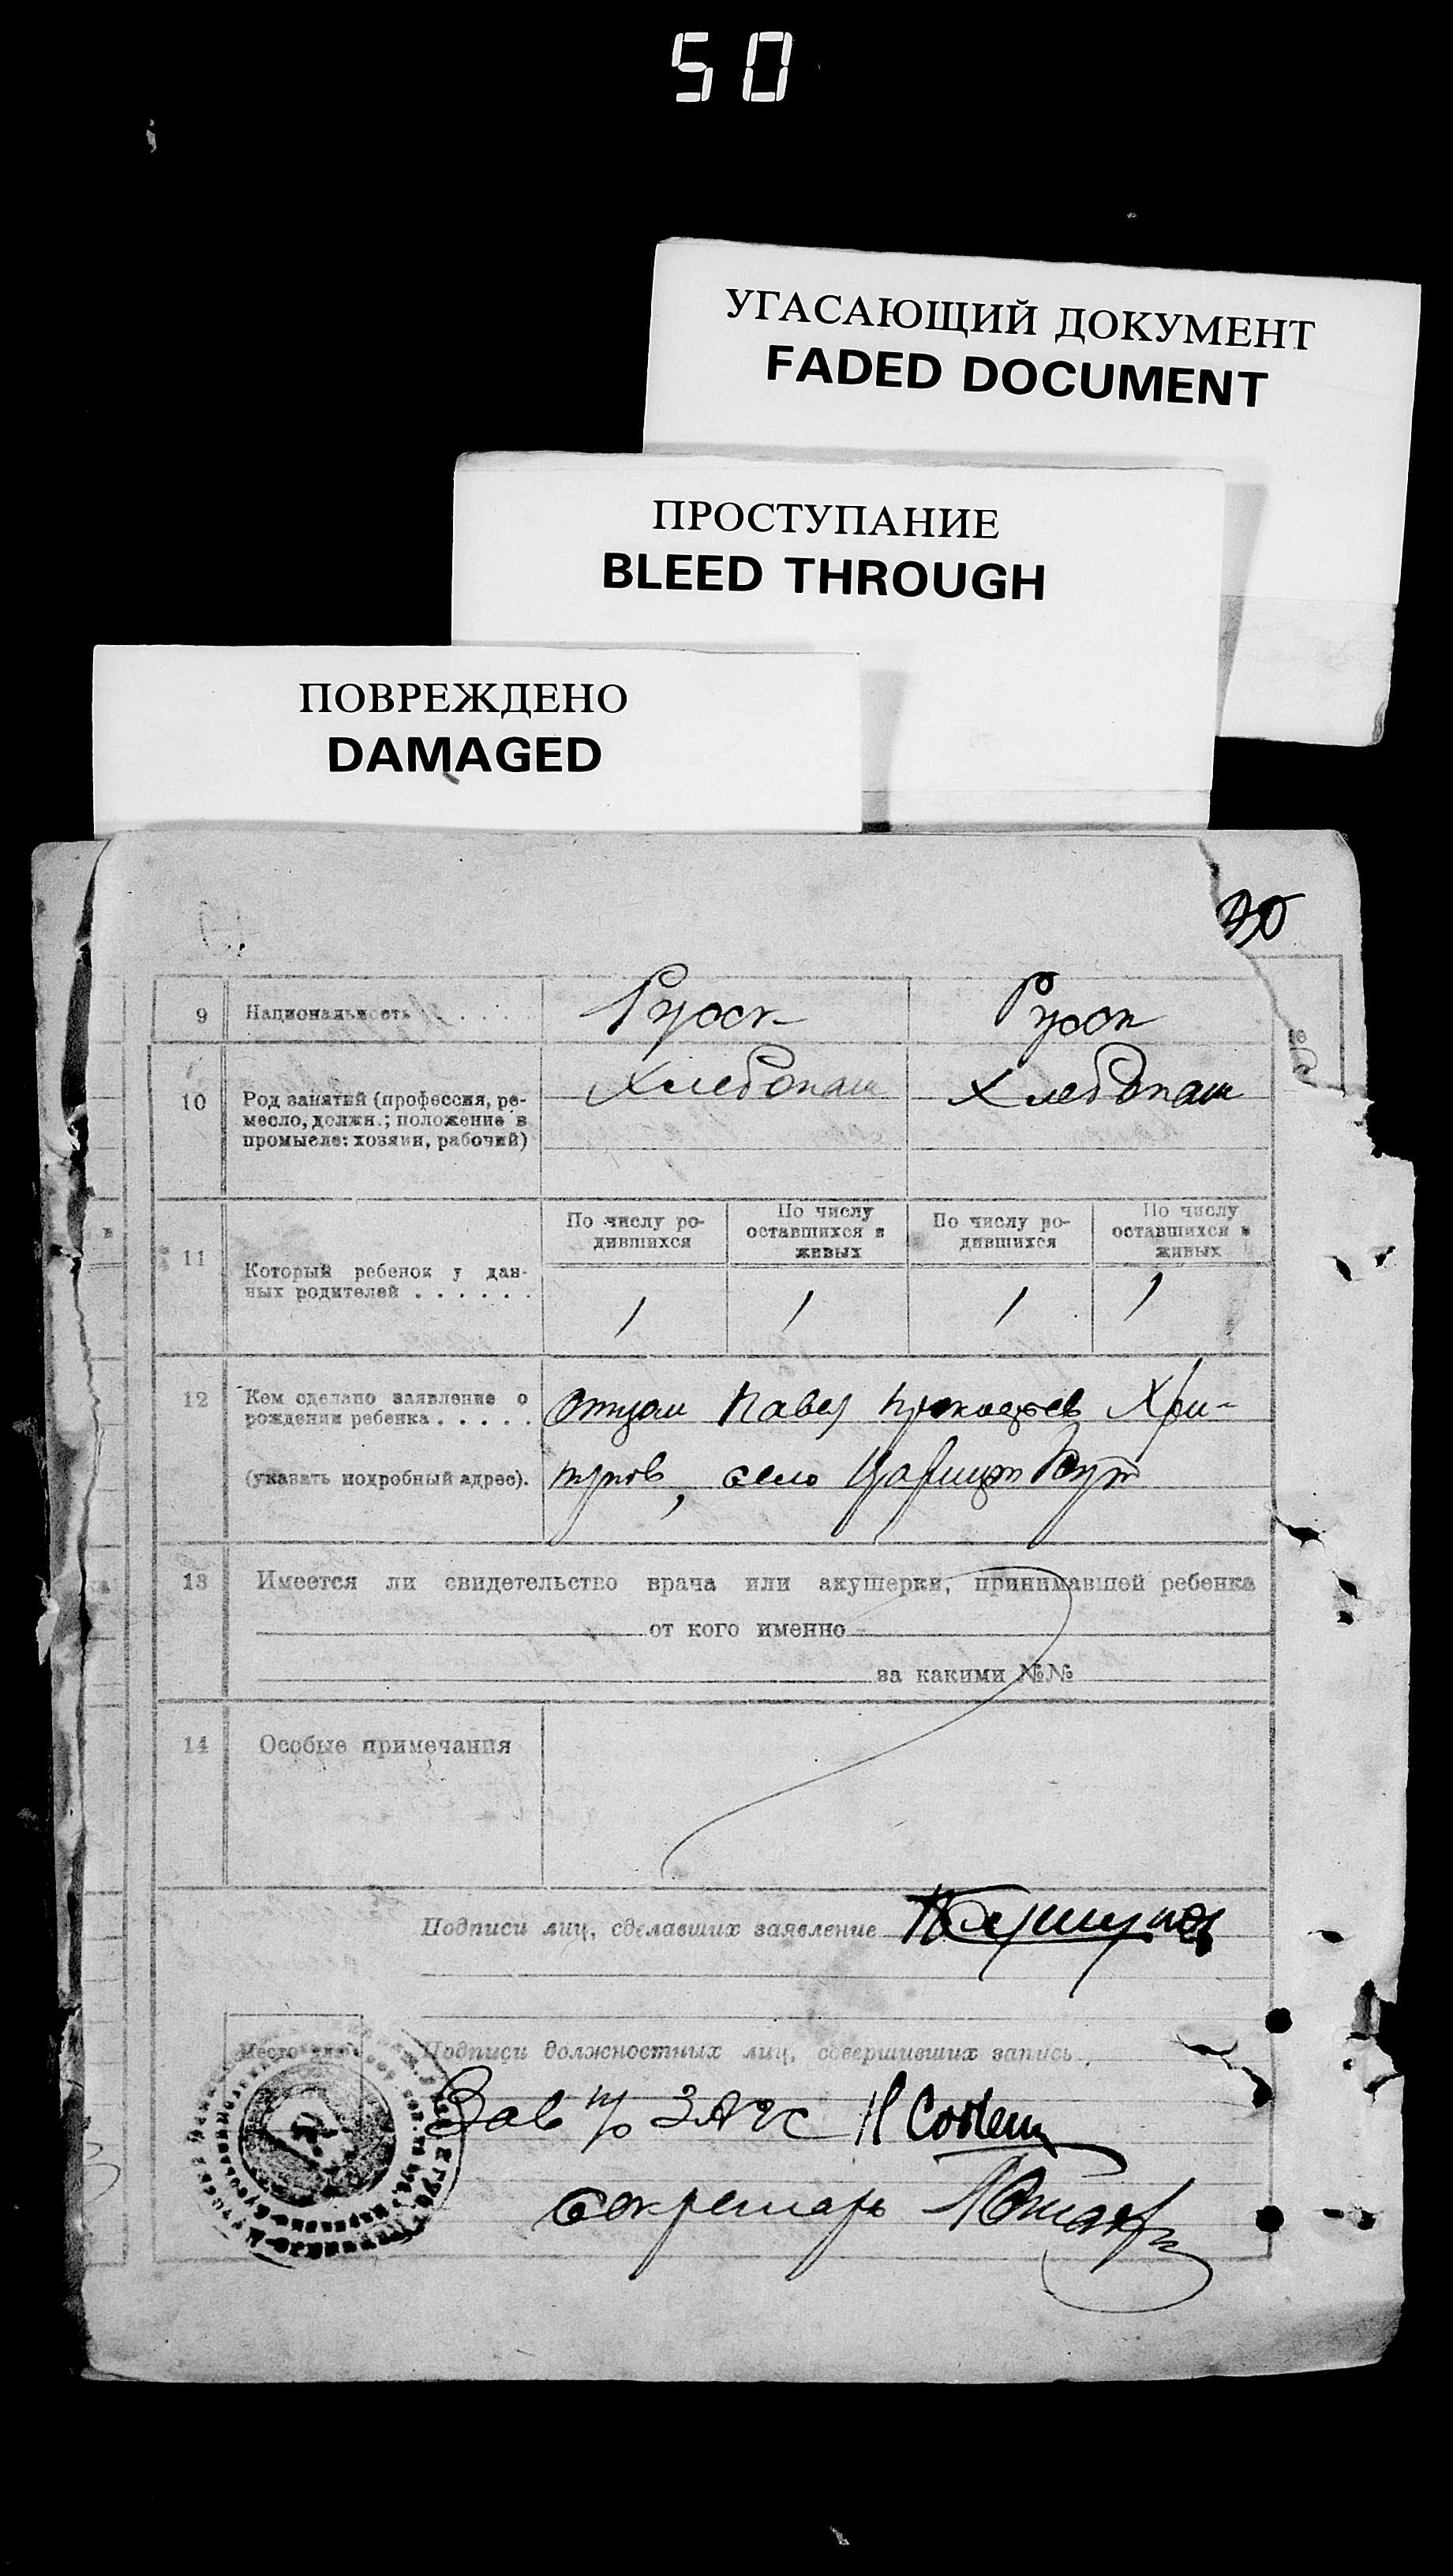 50
УГАСАЮЩИЙ ДОКУМЕНТ
FADED DOCUMENT
ПРОСТУПАНИЕ
BLEED THROUGH
ПОВРЕЖДЕНО
DAMAGED
9 Национальность Русск Русск
10 Род занятий (профессия, ре-
месло, должн.; положение в
промысле: хозяин, рабочий)
Хлебопаш Хлебопаш
11 Который ребенок у дан-
ных родителей
По числу ро-
дившихся
По числу
оставшихся в
живых
По числу ро-
дившихся
По числу
оставшихся в
живых
1 1 1 1
12 Кем сделано заявление о
рождении ребенка
(указать подробный адрес).
Отцом Павел
село Кут
13 Имеется ли свидетельство врача или акушерки, принимавшей ребенка
от кого именно
за какими №№
14 Особые примечания
Подписи лиц, сделавших заявление
Место для
Подписи должностных лиц, совершивших запись
Зав п/о ЗАГС
Секретарь